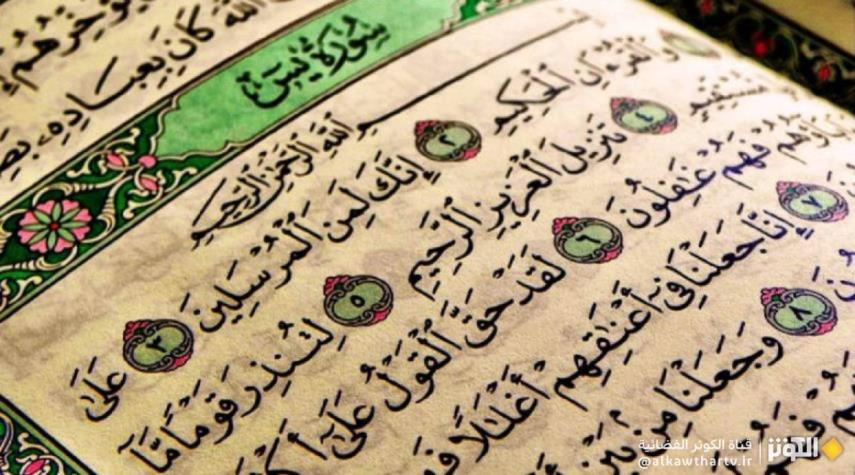 ٱللَّهَ كَانَ بِعِبَادِهِۦ
سُورَةُ يسٓ
ٱللَّهِ ٱلرَّحْمَٰنِ ٱلرَّحِيمِ
وَٱلْقُرْءَانِ ٱلْحَكِيمِ ٢ إِنَّكَ لَمِنَ ٱلْمُرْسَلِينَ ٣ عَلَىٰ
مُّسْتَقِيمٍ ٤ تَنزِيلَ ٱلْعَزِيزِ ٱلرَّحِيمِ ٥ لِتُنذِرَ قَوْمًا مَّآ
فَهُمْ غَٰفِلُونَ ٦ لَقَدْ حَقَّ ٱلْقَوْلُ عَلَىٰٓ
٧ إِنَّا جَعَلْنَا فِىٓ أَعْنَٰقِهِمْ أَغْلَٰلًا
٨ وَجَعَلْنَا مِنۢ بَيْنِ
الكوثر
قناة الكوثر الفضائية
@alkawthartv.ir